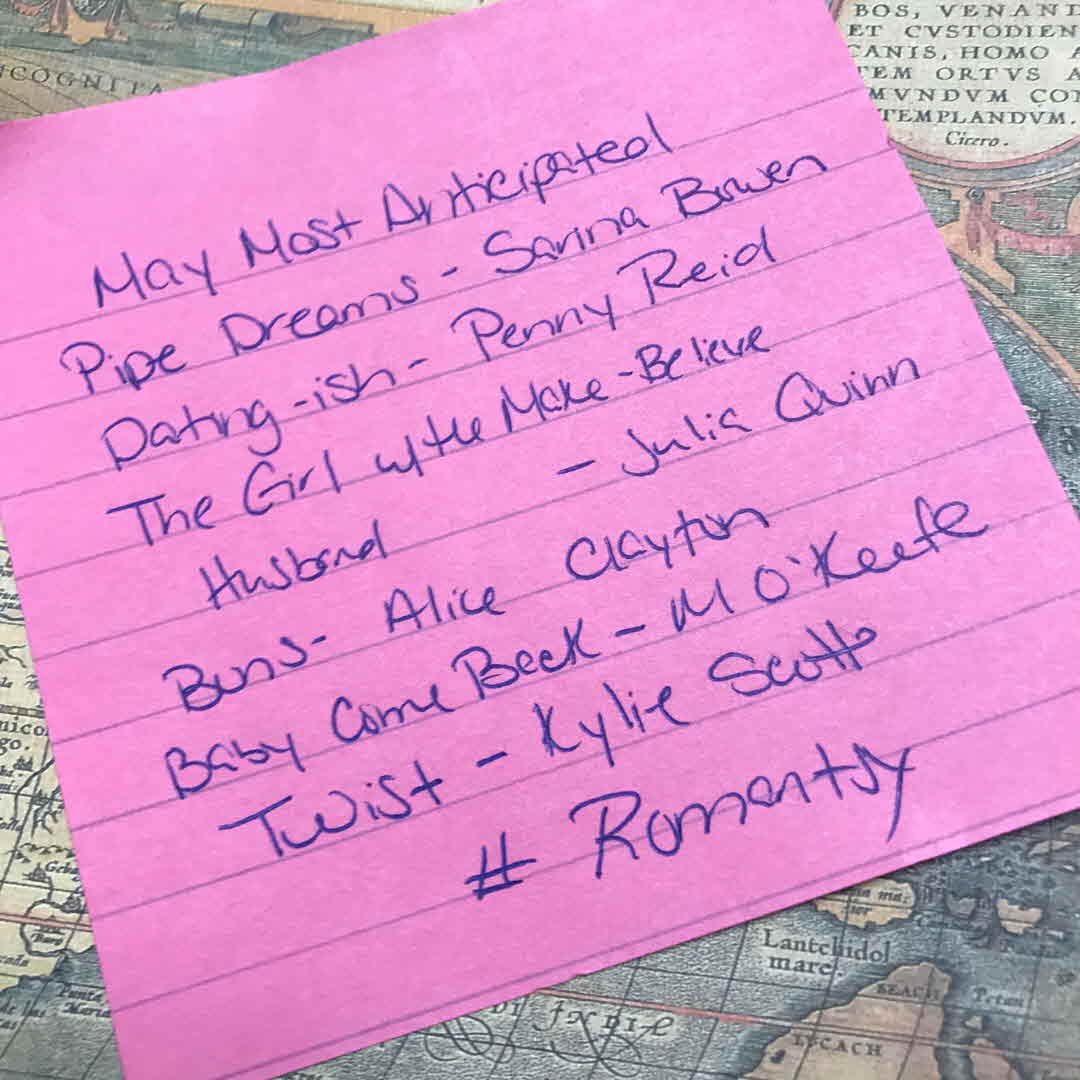 BOS, VENAND
ET CVSTODIEN
CANIS, HOMO A
TEM ORTVS A
MVNDVM CON
TEMPLANDVM.
Cicero.
COGNITA
May Most Anticipated
Pipe Dreams - Sarina Bowen
Dating-ish - Penny Reid
The Girl w/the Make-Believe
Husband - Julia Quinn
Buns - Alice Clayton
Baby Come Back - M O'Keefe
Twist - Kylie Scott
# Romantsy
Lantchidol
mare.
BEACH
Petan
LVCACH